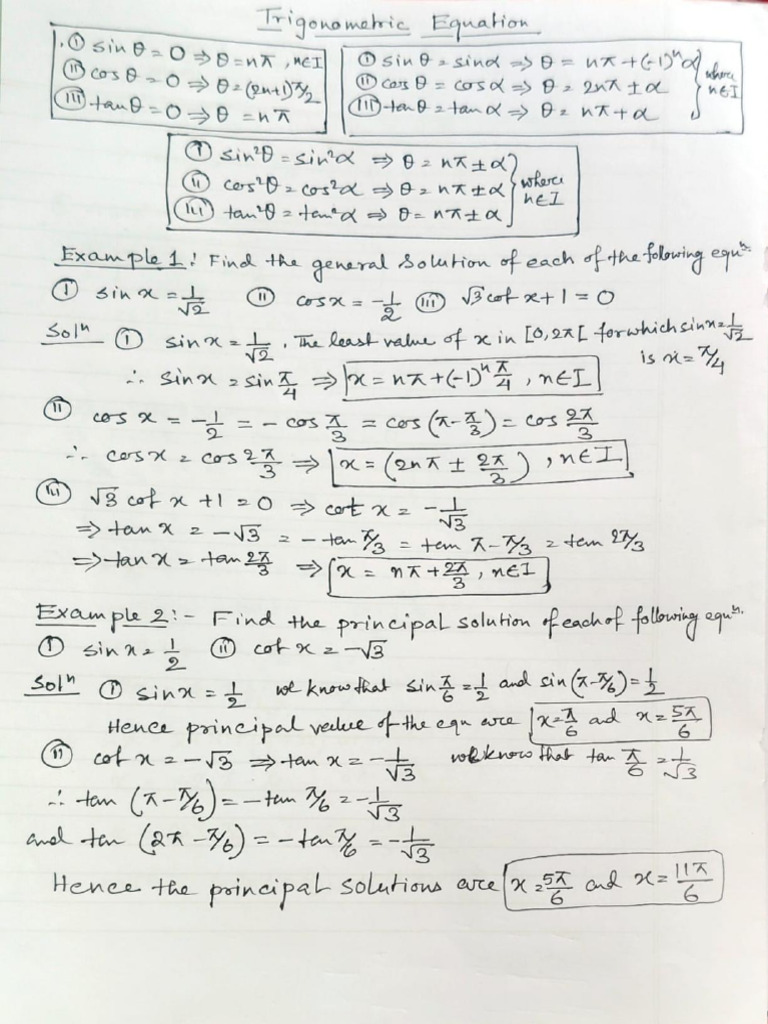 Trigonometric Equation
① sin θ = 0 ⇒ θ = nπ, n∈I
② cos θ = 0 ⇒ θ = (2n+1)π/2
③ tan θ = 0 ⇒ θ = nπ
① sin θ = sin α ⇒ θ = nπ + (-1)ⁿ α
② cos θ = cos α ⇒ θ = 2nπ ± α
③ tan θ = tan α ⇒ θ = nπ + α
where n∈I
① sin²θ = sin²α ⇒ θ = nπ ± α
② cos²θ = cos²α ⇒ θ = nπ ± α
③ tan²θ = tan²α ⇒ θ = nπ ± α
where n∈I
Example 1: Find the general solution of each of the following equⁿˢ.
① sin x = 1/√2 ② cos x = -1/2 ③ √3 cot x + 1 = 0
Solⁿ ① sin x = 1/√2. The least value of x in [0, 2π[ for which sin x = 1/√2
is x = π/4
∴ sin x = sin π/4 ⇒ x = nπ + (-1)ⁿ π/4, n∈I
② cos x = -1/2 = - cos π/3 = cos (π - π/3) = cos 2π/3
∴ cos x = cos 2π/3 ⇒ x = (2nπ ± 2π/3), n∈I
③ √3 cot x + 1 = 0 ⇒ cot x = -1/√3
⇒ tan x = -√3 = - tan π/3 = tan π - π/3 = tan 2π/3
⇒ tan x = tan 2π/3 ⇒ x = nπ + 2π/3, n∈I
Example 2:- Find the principal solution of each of following equⁿˢ.
① sin x = 1/2 ② cot x = -√3
Solⁿ ① sin x = 1/2 we know that sin π/6 = 1/2 and sin (π - π/6) = 1/2
Hence principal value of the eqn are x = π/6 and x = 5π/6
② cot x = -√3 ⇒ tan x = -1/√3 we know that tan π/6 = 1/√3
∴ tan (π - π/6) = - tan π/6 = -1/√3
and tan (2π - π/6) = - tan π/6 = -1/√3
Hence the principal solutions are x = 5π/6 and x = 11π/6